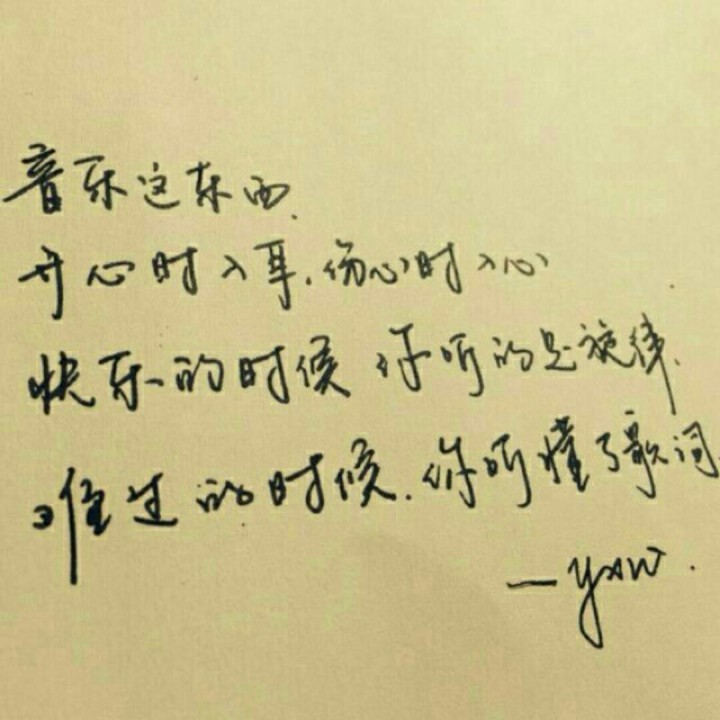 音乐这东西.
开心时入耳.伤心时入心
快乐的时候 你听的是旋律.
难过的时候.你听懂了歌词.
—yxw.